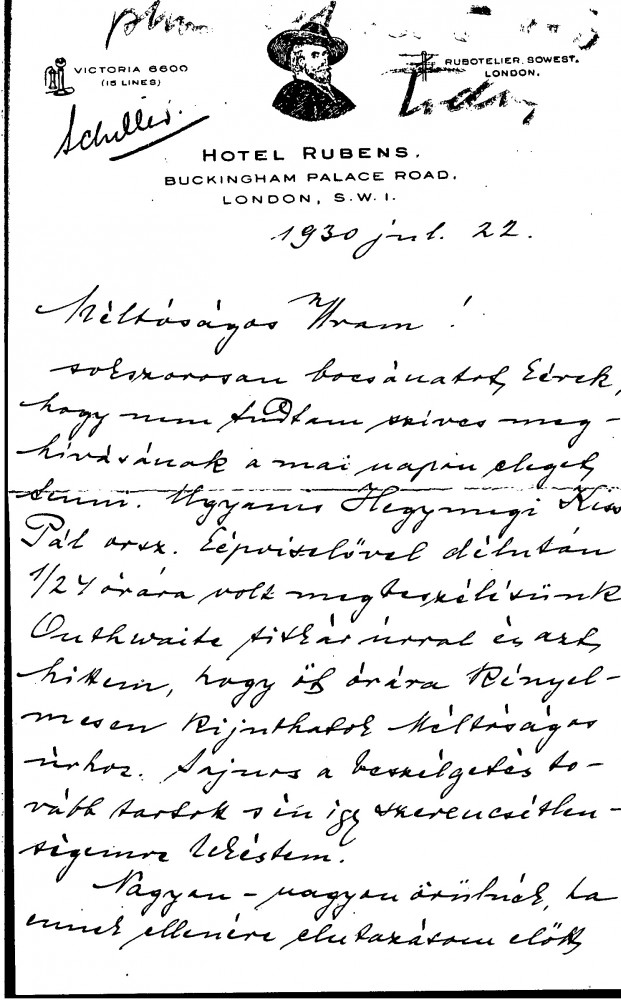 VICTORIA 6600
(15 LINES)
RUBOTELIER, SOWEST,
LONDON.
Schiller.
HOTEL RUBENS.
BUCKINGHAM PALACE ROAD,
LONDON, S.W.1.
1930 jul. 22.
Méltóságos Uram!
sokszorosan bocsánatot kérek,
hogy nem tudtam szives meg-
hívásának a mai napon eleget
tenni. Ugyanis Hegymegi Kiss
Pál orsz. képviselővel délután
1/24 órára volt megbeszélésünk
Outhwaite titkár úrral és azt
hittem, hogy öt órára kényel-
mesen kijuthatok Méltóságos
úrhoz. Sajnos a beszélgetés to-
vább tartott s én így szerencsétlen-
ségemre lekéstem.
Nagyon - nagyon örülnék, ha
ennek ellenére elutazásom előtt